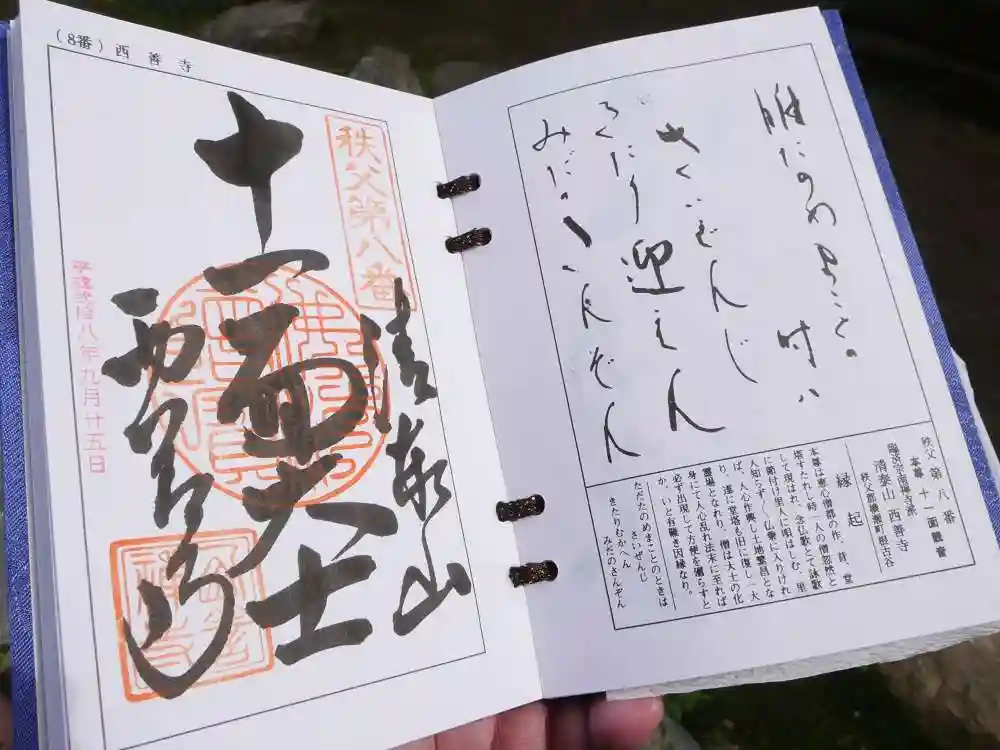 (8番) 西善寺
秩父第八番
清泰山
十一面大士
西善寺
平成弐拾八年九月廿五日
只たのめ
まことの時ハ
さいぜんじ
きたり迎えん
みだの三ぞん
秩父第八番
臨済宗南禅寺派
本尊 十一面観音
清泰山 西善寺
秩父郡横瀬町根古谷
縁起
本尊は恵心僧都の作、昔、堂
塔すたれし時一人の僧忽然と
して現はれ、念仏歌とて詠歌
に節付け里人に唄はしむ、里
人知らず〳〵仏乗に入りけれ
ば、人心作興し土地繁昌とな
り、遂に堂塔も旧に復し一大
霊場となれり、僧は大士の化
身にて人心乱れ法末に至れば
必ず出現して方便を濺らすと
か、いと有難き因縁なり。
ただたのめまことのときは
さいぜんじ
きたりむかへん
みだのさんぞん